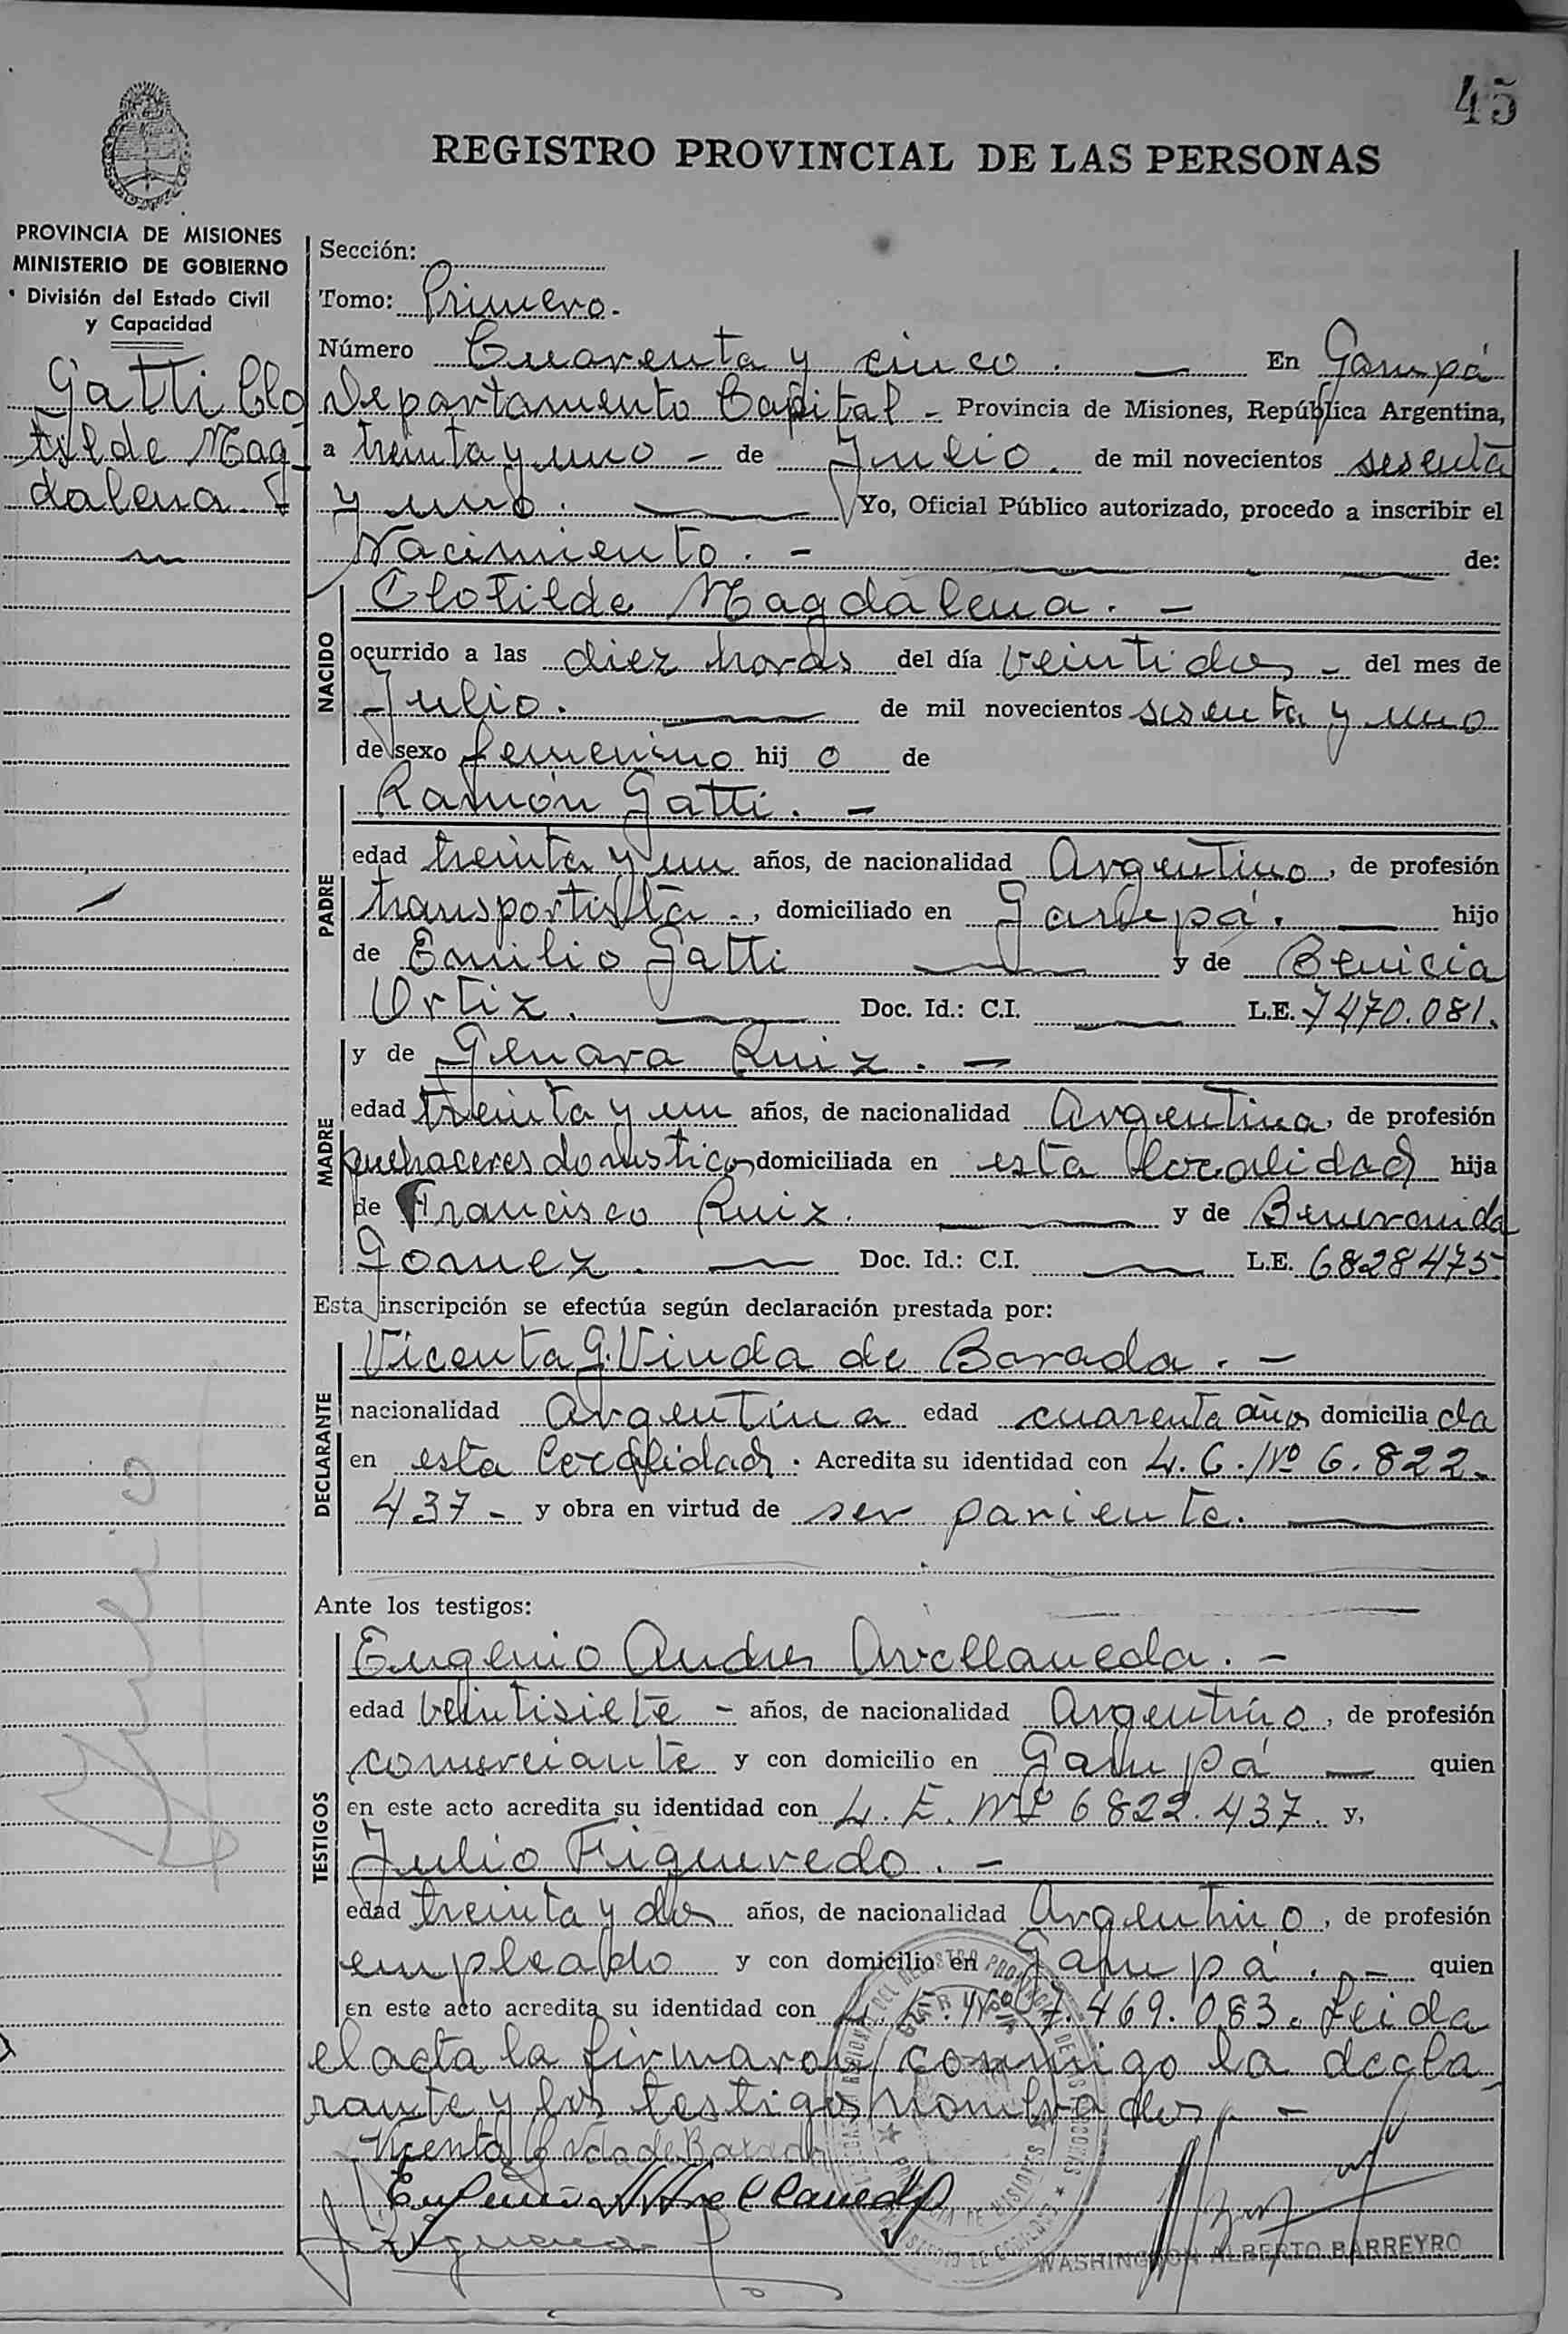 45
REGISTRO PROVINCIAL DE LAS PERSONAS
PROVINCIA DE MISIONES
MINISTERIO DE GOBIERNO
División del Estado Civil
y Capacidad
Gatti Clo
tilde Mag-
dalena
Sección:
Tomo: Primero.
Número Cuarenta y cinco. En Garupá
Departamento Capital - Provincia de Misiones, República Argentina,
a treinta y uno - de Julio. de mil novecientos sesenta
y uno. Yo, Oficial Público autorizado, procedo a inscribir el
Nacimiento. - de:
NACIDO
Clotilde Magdalena. -
ocurrido a las diez horas del día veintidos - del mes de
Julio. de mil novecientos sesenta y uno
de sexo femenino hij o de
PADRE
Ramón Gatti. -
edad treinta y un años, de nacionalidad Argentino, de profesión
transportista -, domiciliado en Garupá. hijo
de Emilio Gatti y de Benicia
Ortiz. Doc. Id.: C.I. L.E. 7470.081.
MADRE
y de Genara Ruiz. -
edad treinta y un años, de nacionalidad Argentina, de profesión
quehaceres domesticos domiciliada en esta localidad hija
de Francisco Ruiz. y de Beneranda
Gomez. Doc. Id.: C.I. L.E. 6828475
Esta inscripción se efectúa según declaración prestada por:
DECLARANTE
Vicenta G. Viuda de Barada. -
nacionalidad Argentina edad cuarenta años domicilia da
en esta localidad. Acredita su identidad con L.C. Nº 6.822-
437- y obra en virtud de ser pariente.
Ante los testigos:
TESTIGOS
Eugenio Andres Avellaneda. -
edad veintisiete - años, de nacionalidad Argentino, de profesión
comerciante y con domicilio en Garupá quien
en este acto acredita su identidad con L.E. Nº 6822.437. y,
Julio Figueredo. -
edad treinta y dos años, de nacionalidad Argentino, de profesión
empleado y con domicilio en Garupá. - quien
en este acto acredita su identidad con L.E. Nº 7.469.083. Leida
el acta la firmaron conmigo la decla
rante y los testigos nombrados. -
Vicenta G Vda de Barada
WASHINGTON ALBERTO BARREYRO